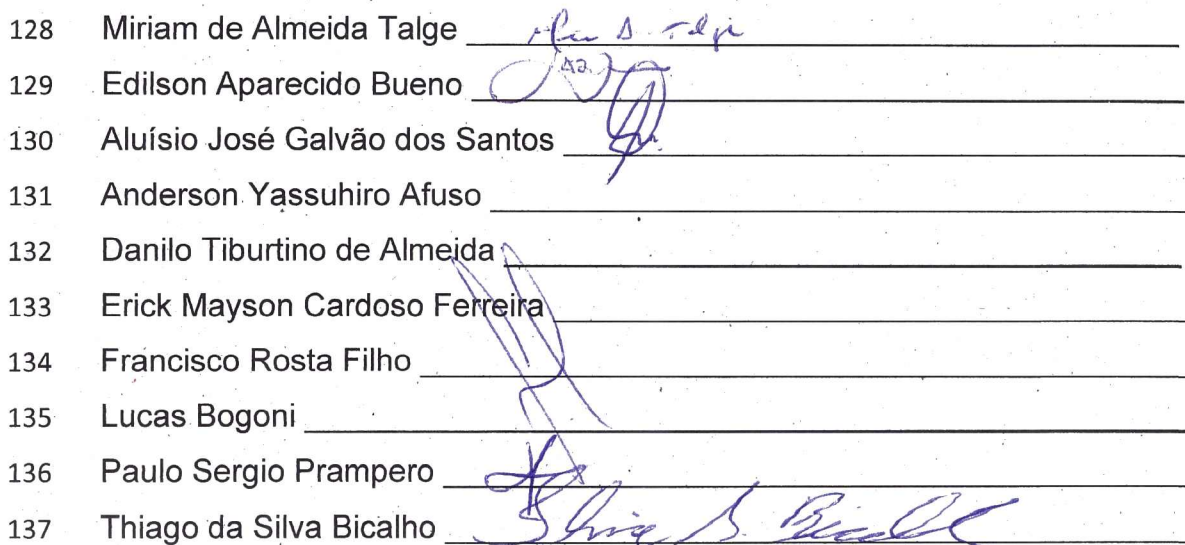 128 Miriam de Almeida Talge
129 Edilson Aparecido Bueno
130 Aluísio José Galvão dos Santos
131 Anderson Yassuhiro Afuso
132 Danilo Tiburtino de Almeida
133 Erick Mayson Cardoso Ferreira
134 Francisco Rosta Filho
135 Lucas Bogoni
136 Paulo Sergio Prampero
137 Thiago da Silva Bicalho